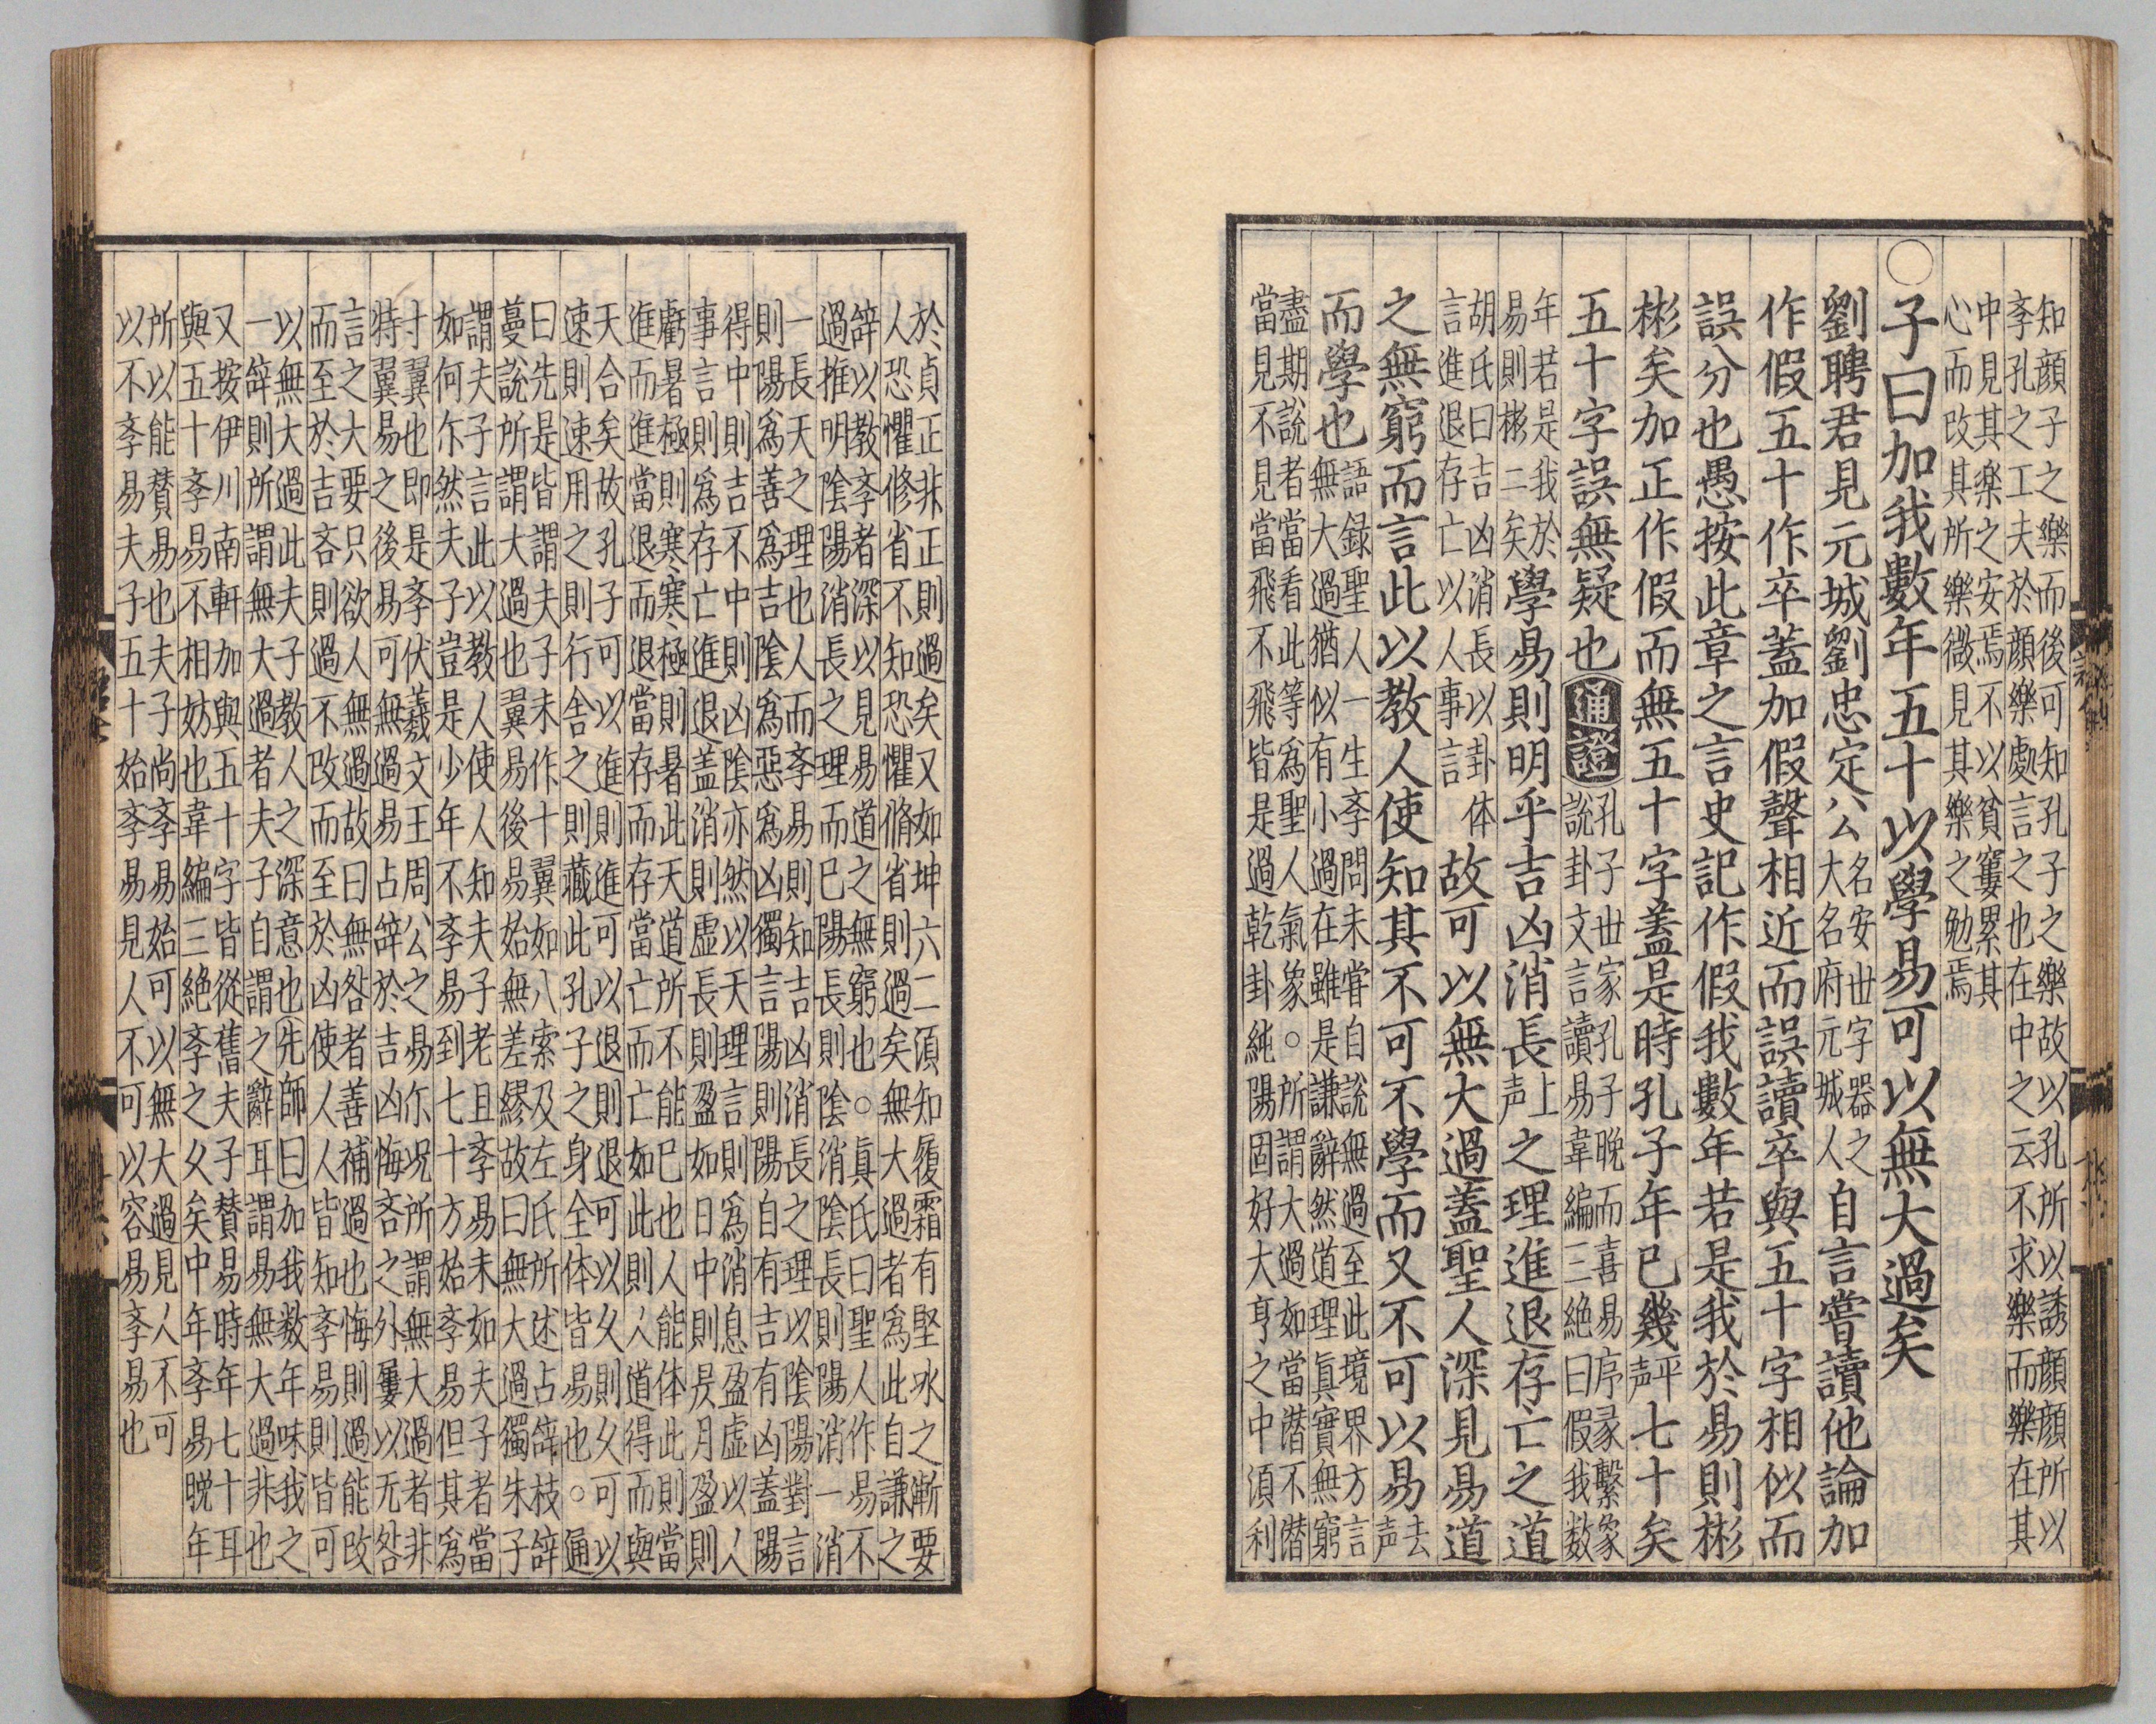 知顔子之樂而後可知孔子之樂故以孔所以誘顔顔所以
斈孔之工夫於顔樂處言之也在中之云不求樂而樂在其
中見其楽之安焉不以貧窶累其
心而改其所樂微見其樂之勉焉
〇子曰加我數年五十以學易可以無大過矣
劉聘君見元城劉忠定公名安世字器之大名府元城人自言嘗讀他論加
作假五十作卒蓋加假聲相近而誤讀卒與五十字相似而
誤分也愚按此章之言史記作假我數年若是我於易則彬
彬矣加正作假而無五十字蓋是時孔子年已幾平声七十矣
五十字誤無疑也通證孔子世家孔子晚而喜易序彖繫象說卦文言讀易韋編三絶曰假我数
年若是我於易則彬二矣學易則明乎吉凶消長上声之理進退存亡之道
胡氏曰吉凶消長以卦体言進退存亡以人事言故可以無大過蓋聖人深見易道
之無窮而言此以教人使知其不可不學而又不可以易去声
而學也語録聖人一生斈問未甞自說無過至此境界方言無大過猶似有小過在雖是謙辭然道理眞實無窮
盡期說者當看此等爲聖人氣象○所謂大過如當潜不潜
當見不見當飛不飛皆是過乾卦純陽固好大亨之中湏利
於貞正非正則過矣又如坤六二湏知履霜有堅氷之漸要
人恐懼修省不知恐懼脩省則過矣無大過者爲此自謙之
辝以教斈者深以見易道之無窮也○眞氏曰聖人作易不
過推明隂陽消長之理而已陽長則隂消隂長則陽消一消
一長天之理也人而斈易則知吉凶消長之理以隂陽對言
則陽爲善爲吉隂爲惡爲凶獨言陽則陽自有吉有凶蓋陽
得中則吉不中則凶隂亦然以天理言則爲消息盈虚以人
事言則爲存亡進退蓋消則虚長則盈如日中則昃月盈則
虧暑極則寒寒極則暑此天道所不能已也人能体此則當
進而進當退而退當存而存當亡而亡如此則人道得而與
天合矣故孔子可以進則進可以退則退可以久則久可以
速則速用之則行舎之則藏此孔子之身全体皆易也○通
曰先是皆謂夫子未作十翼如八索及左氏所述占辝枝辝
蔓說所謂大過也翼易後易始無差繆故曰無大過獨朱子
謂夫子言此以教人使人知夫子老且斈易未如夫子者當
如何尓然夫子豈是少年不斈易到七十方始斈易但其爲
十翼也即是斈伏羲文王周公之易尓况所謂無大過者非
特翼易之後易可無過易占辝於吉凶悔吝之外屢以无咎
言之大要只欲人無過故曰無咎者善補過也悔則過能改
而至於吉吝則過不改而至於凶使人人皆知斈易則皆可
以無大過此夫子教人之深意也先師曰加我数年味我之
一辝則所謂無大過者夫子自謂之辭耳謂易無大過非也
又按伊川南軒加與五十字皆從舊夫子賛易時年七十耳
與五十斈易不相妨也韋編三絶斈之久矣中年斈易晩年
所以能賛易也夫子尚斈易始可以無大過見人不可
以不斈易夫子五十始斈易見人不可以容易斈易也